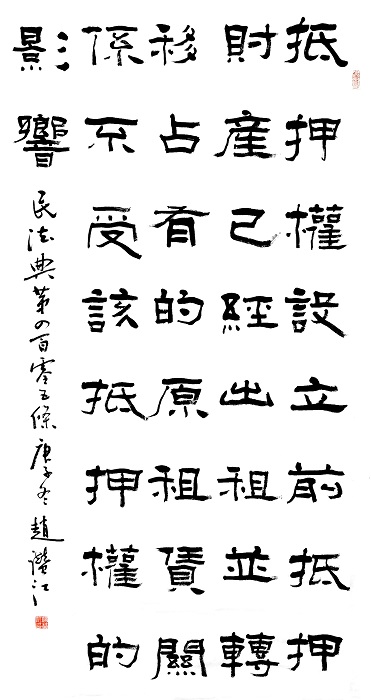 抵押權設立前抵押
財產已經出租並轉
移占有的原租賃關
係不受該抵押權的
影響
民法典第四百零五條庚子冬趙江